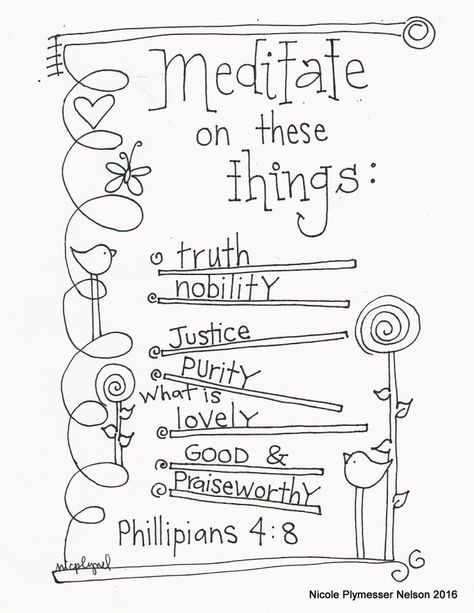 Meditate
on these
things:
truth
nobility
Justice
Purity
What is
lovely
GOOD &
Praiseworthy
Phillipians 4:8
nicplynel
Nicole Plymesser Nelson 2016